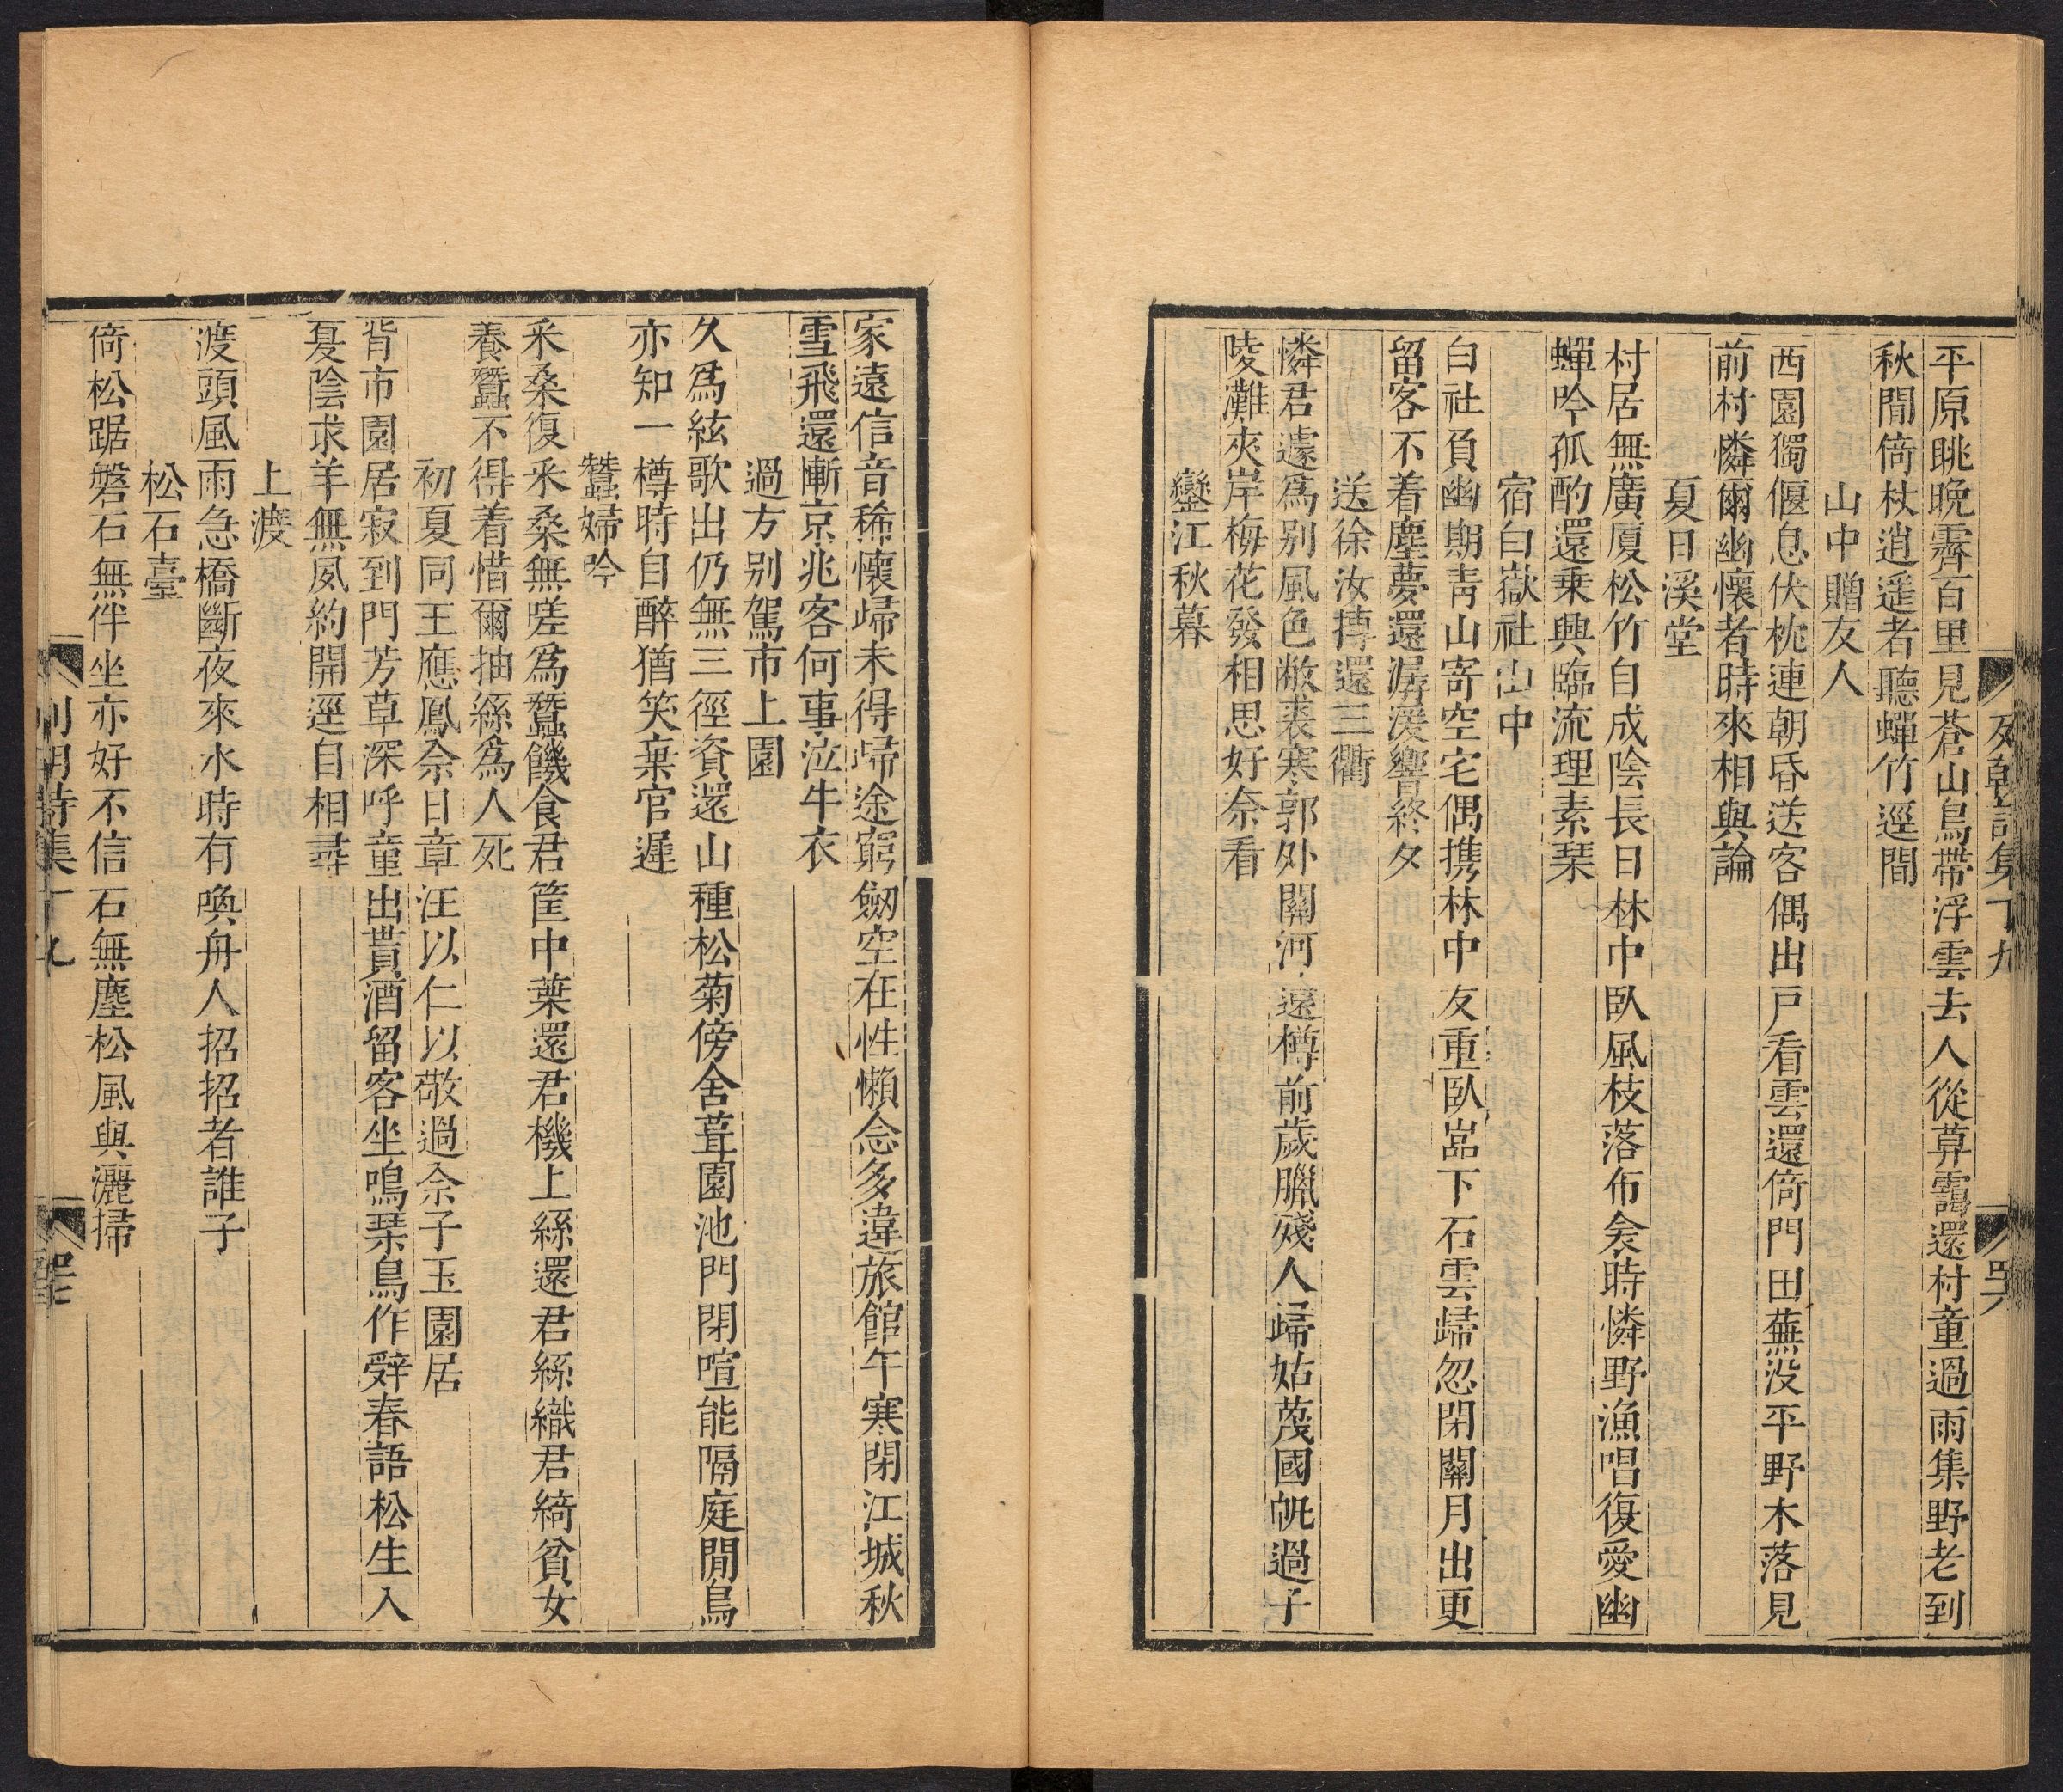 平原眺晚霽百里見蒼山鳥帶浮雲去人從莽靄還村童過雨集野老到
秋閒倚杖逍遥者聽蟬竹逕間
山中贈友人
西園獨偃息伏枕連朝昏送客偶出戸看雲還倚門田蕪没平野木落見
前村憐爾幽懷者時來相與論
夏日溪堂
村居無廣厦松竹自成陰長日林中臥風枝落布衾時憐野漁唱復愛幽
蟬吟孤酌還乗興臨流理素琹
宿白嶽社山中
白社負幽期靑山寄空宅偶携林中友重臥嵓下石雲歸忽閉關月出更
留客不着塵夢還潺湲響終夕
送徐汝摶還三衢
憐君遽爲别風色敝裘寒郭外關河遠樽前歲臘殘人歸姑蔑國帆過子
陵灘夾岸梅花發相思好奈看
鑾江秋暮
家遠信音稀懷歸未得歸途窮劒空在性懶念多違旅館午寒閉江城秋
雪飛還慚京兆客何事泣牛衣
過方别駕市上園
久爲絃歌出仍無三徑資還山種松菊傍舍葺園池門閉喧能隔庭閒鳥
亦知一樽時自醉猶笑棄官遲
蠶婦吟
采桑復采桑無嗟爲蠶饑食君筐中葉還君機上絲還君絲織君綺貧女
養蠶不得着惜爾抽絲爲人死
初夏同王應鳳佘日章汪以仁以敬過佘子玉園居
背市園居寂到門芳草深呼童出貰酒留客坐鳴琹鳥作辤春語松生入
夏陰求羊無夙約開逕自相尋
上渡
渡頭風雨急橋斷夜來水時有喚舟人招招者誰子
松石臺
倚松踞磐石無伴坐亦好不信石無塵松風與灑掃